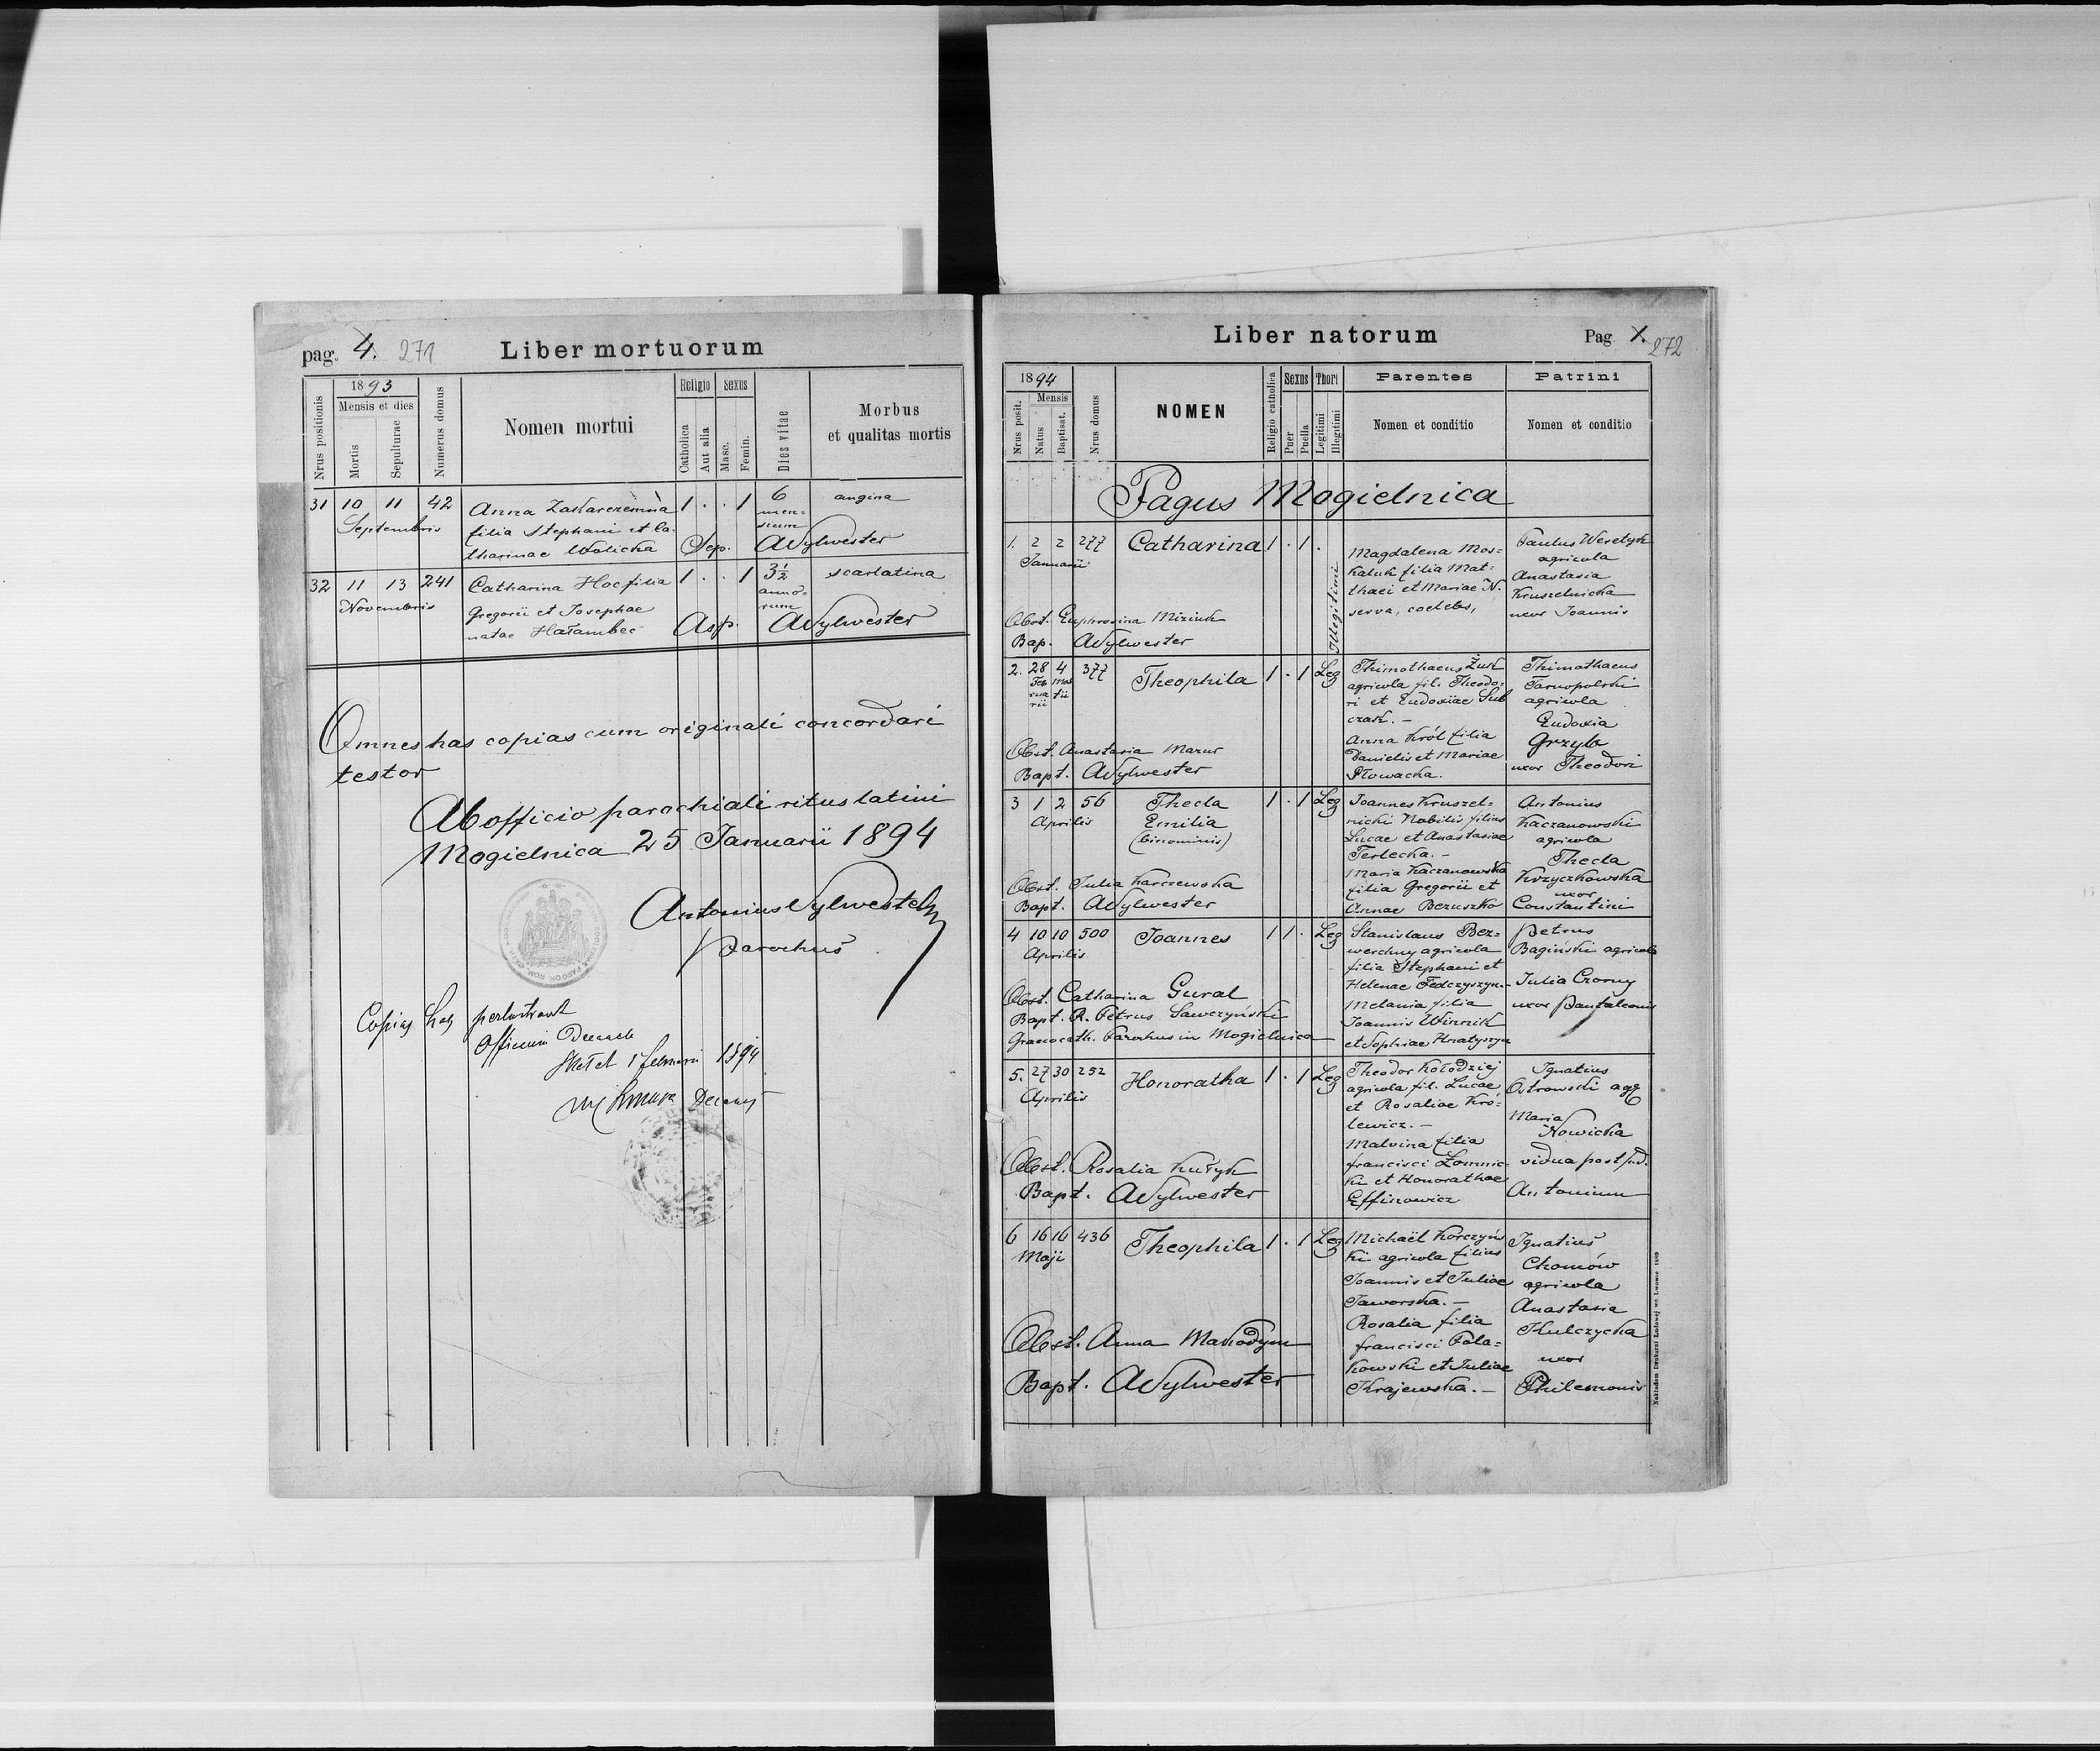 pag. 4. 271
Liber mortuorum
Nrus positionis
1893
Mensis et dies
Mortis
Sepulturae
Numerus domus
Nomen mortui
Religio
Catholica
Aut alia
Sexus
Masc.
Femin.
Dies vitae
Morbus
et qualitas mortis
31 10 11 42 Anna 1 . . 1 6 angina
Septembris filia Stephani et Ca-
men-
sium
tharinae Wolicka Sep. ASylwester
32 11 13 241 Catharina Hoc filia 1 . . 1 3½ scarlatina
Novembris Gregorii et Josephae
anno-
rum
natae Hałambec Asp. ASylwester
Omnes has copias cum originali concordari
testor
Ab officio parochiali ritus latini
Mogielnica 25 Januarii 1894
Antonius Sylwester
Parochus
Copias has perlustravit
Officium
1 Februarii 1894
Decanus
Liber natorum
Pag 1. 272
1894
Nrus posit.
Mensis
Natus
Baptisat.
Nrus domus
NOMEN
Religio catholica
Sexus
Puer
Puella
Thori
Legitimi
Illegitimi
Parentes
Nomen et conditio
Patrini
Nomen et conditio
Pagus Mogielnica
1. 2 2 277 Catharina 1 . 1 .
Januarii
Illegitimi
Magdalena Mos-
kaluk filia Mat-
thaei et Mariae N.
serva, coelebs,
Paulus Weretyk
agricola
Anastasia
Kruszelnicka
uxor Joannis
Obst. Euphrosina Miziuk
Bap. ASylwester
2. 28 4 377 Theophila 1 . 1 Leg
Feb
rua
rii
Mar
tii
Thimothaeus Żuk
agricola fil. Theodo-
ri et Eudoxiae Sub
czak. -
Anna Król filia
Danielis et Mariae
Słowacka.
Thimothaeus
Tarnopolski
agricola
Eudoxia
Grzyb
uxor Theodori
Obst. Anastasia Mazur
Bapt. ASylwester
3 1 2 56 Thecla 1 . 1 Leg
Aprilis Emilia
(binominis)
Joannes Kruszel-
nicki Nobilis filius
Lucae et Anastasiae
Terlecka. -
Maria Kaczanowska
filia Gregorii et
Annae Bezuszko
Antonius
Kaczanowski
agricola
Thecla
Krzyczkowska
uxor
Constantini
Obst. Julia Karczewska
Bapt. ASylwester
4 10 10 500 Joannes 1 1 . Leg
Aprilis
Stanislaus Bez-
werchny agricola
filia Stephani et
Helenae Fedczyszyn. -
Melania filia
Joannis Winnik
et Sophiae Hnatyszyn
Petrus
Bagiński agricola
Julia Czorny
uxor Pantaleonis
Obst. Catharina Gural
Bapt. R. Petrus Sawczyński
Graecocath. Parochus in Mogielnica
5. 27 30 252 Honoratha 1 . 1 Leg
Aprilis
Theodor Kołodziej
agricola fil. Lucae
et Rosaliae Kró-
lewicz. -
Malvina filia
Francisci Łomnic-
ki et Honorathae
Effinowicz
Ignatius
Ostrowski agr
Maria
Nowicka
vidua post
Antonium
Obst. Rosalia Kułyk
Bapt. ASylwester
6 16 16 436 Theophila 1 . 1 Leg
Maji
Michaël Korczyńs
ki agricola filius
Joannis et Juliae
Jaworska. -
Rosalia filia
Francisci Pola-
kowski et Juliae
Krajewska. -
Ignatius
Chomów
agricola
Anastasia
Kulczycka
uxor
Philemonis
Obst. Anna Makodym
Bapt. ASylwester